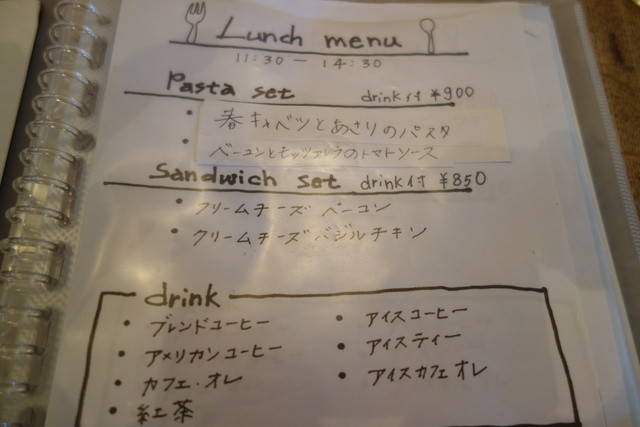 Lunch menu
11:30 — 14:30
Pasta set drink付 ¥900
・春キャベツとあさりのパスタ
・ベーコンとモッツァレラのトマトソース
Sandwich set drink付 ¥850
・クリームチーズ ベーコン
・クリームチーズバジルチキン
drink
・ブレンドコーヒー
・アメリカンコーヒー
・カフェ・オレ
・紅茶
・アイスコーヒー
・アイスティー
・アイスカフェオレ